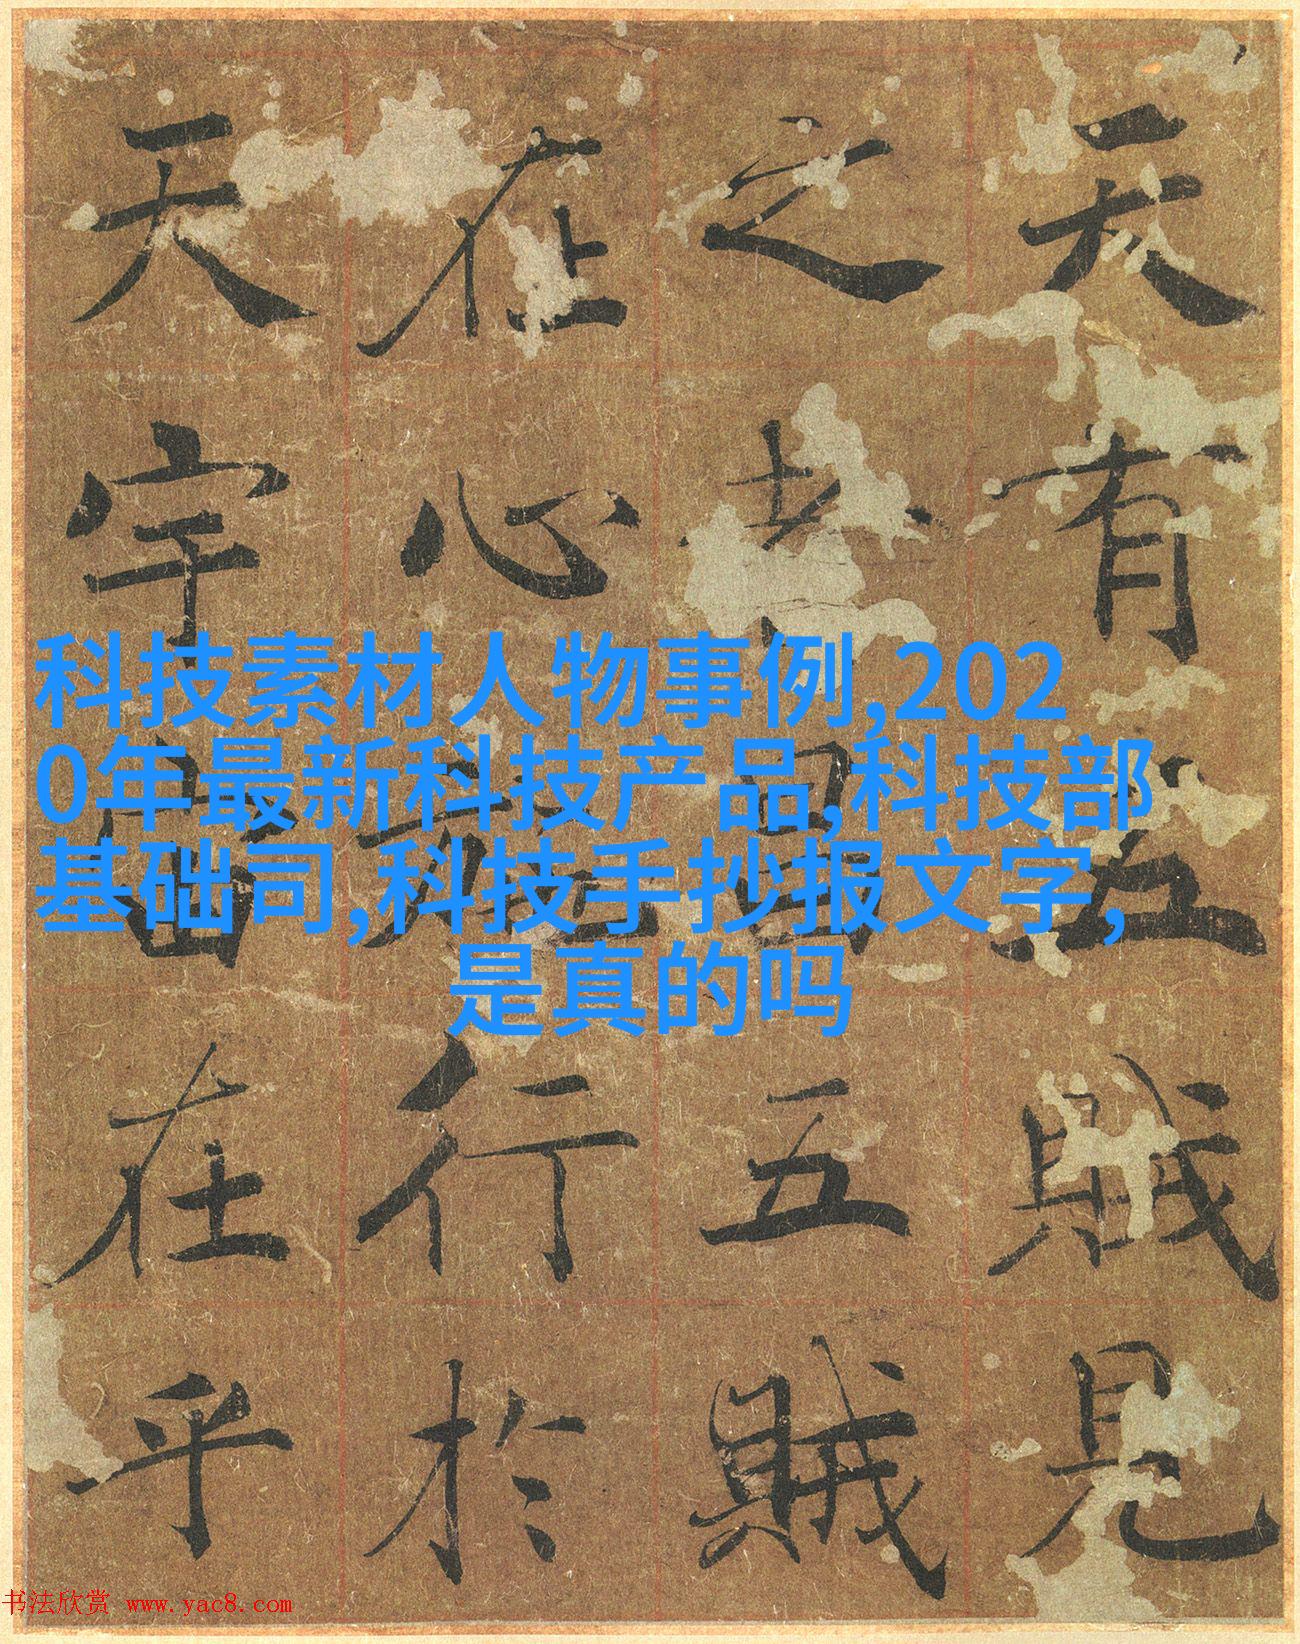 天有五賊見
之者昌五賊
在心施行於
天宇宙在乎
科技素材人物事例,202
0年最新科技产品,科技部
基础司,科技手抄报文字,
是真的吗
书法欣赏 www.yac8.com